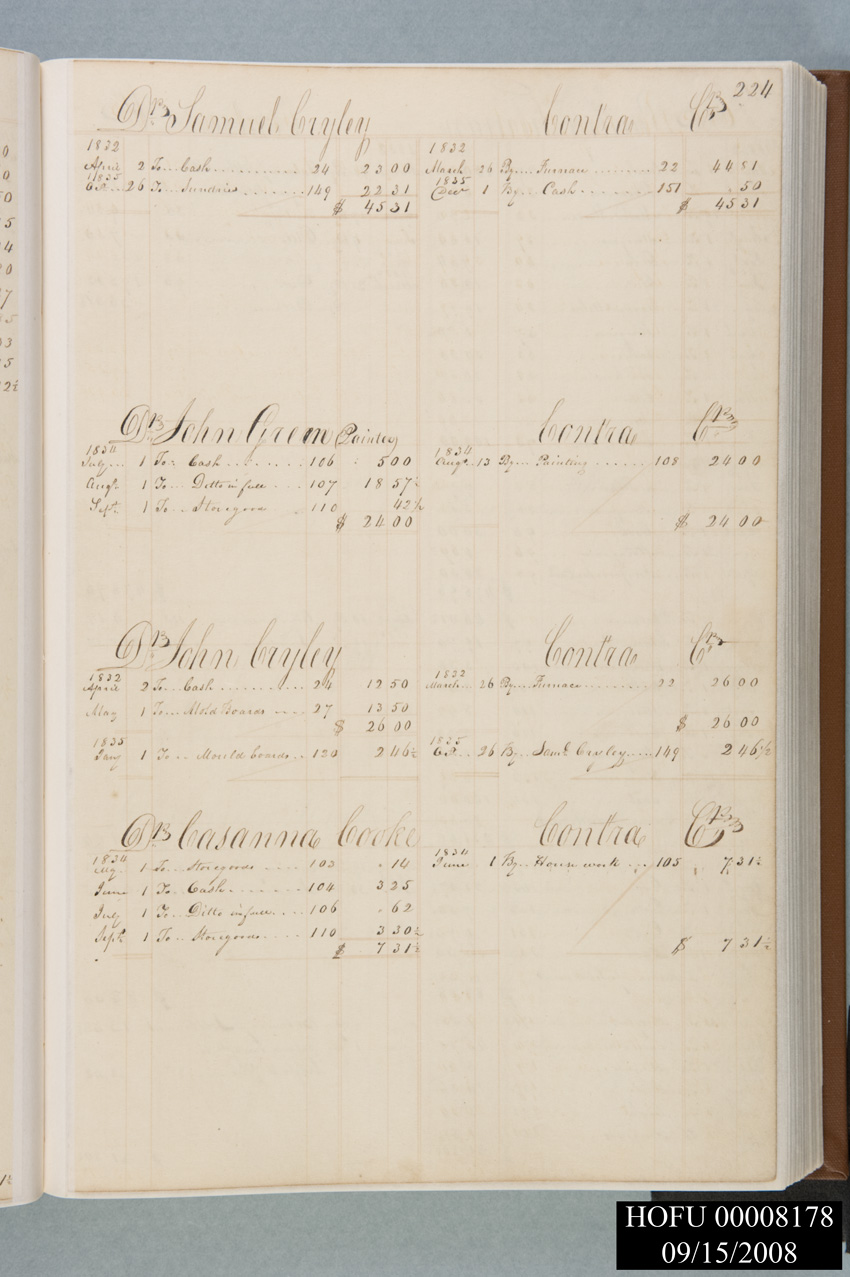 224
Dr. Samuel Cryley Contra Cr.
1832 1832
April 2 To.. Cash 24 23 00 March 26 By... Furnace 22 44 81
1835 1835
26 To.. Sundries 149 22 31 Decr 1 By.. Cash 151 .50
$ 45 31 $ 45 31
Dr. John Green Painter Contra Cr.
1834 1834
July 1 To.. Cash 106 5 00 Augt. 13 By... Painting 108 24 00
Augt. 1 To.. Ditto in full 107 18 57½
Sept. 1 To.. Storegoods 110 42½
$ 24 00 $ 24 00
Dr. John Cryley Contra Cr.
1832 1832
April 2 To.. Cash 24 12 50 March 26 By... Furnace 22 26 00
May 1 To.. Mold Boards 27 13 50
$ 26 00 $ 26 00
1835 1835
Jany 1 To... Mould boards 130 2 46½ 26 By.. Saml. Cryley 149 2 46½
Dr. Casanna Cooke Contra Cr.
1834 1834
My. 1 To.. Storegoods 103 .14 June 1 By.. House work 105 7 31½
June 1 To.. Cash 104 3 25
July 1 To.. Ditto in full 106 .62
Sept. 1 To.. Storegoods 110 3 30½
$ 7 31½ $ 7 31½
HOFU 00008178
09/15/2008